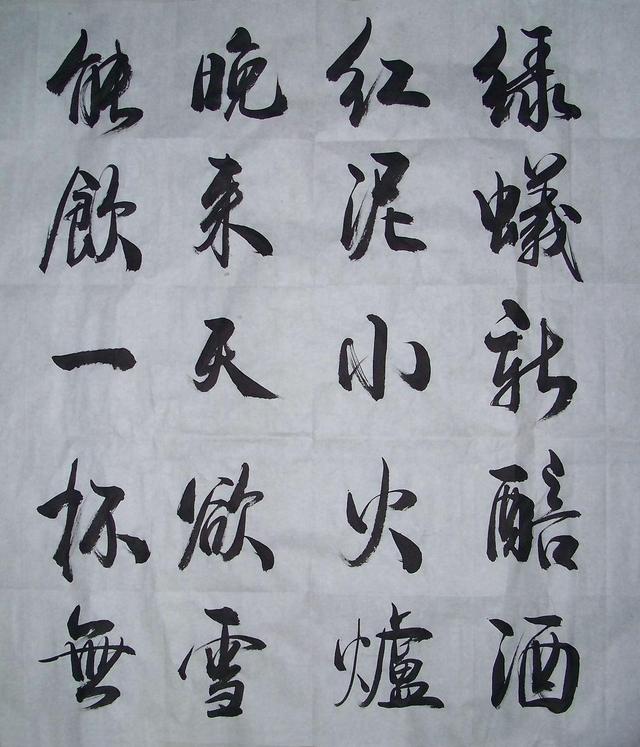 綠蟻新醅酒
紅泥小火爐
晚来天欲雪
能飲一杯無